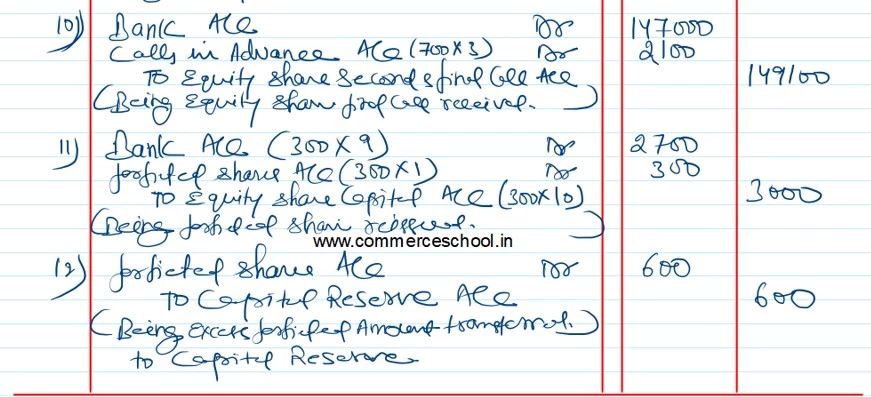 10) Bank A/c Dr 147000
Calls in Advance A/c (700×3) Dr 2100
To Equity Share Second & final Call A/c 149100
(Being Equity Share final Call received.)
11) Bank A/c (300×9) Dr 2700
forfeited shares A/c (300×1) Dr 300
To Equity Share Capital A/c (300×10) 3000
(Being forfeited share reissued.)
www.commerceschool.in
12) forfeited share A/c Dr 600
To Capital Reserve A/c 600
(Being Excess forfeited Amount transferred.)
to Capital Reserve